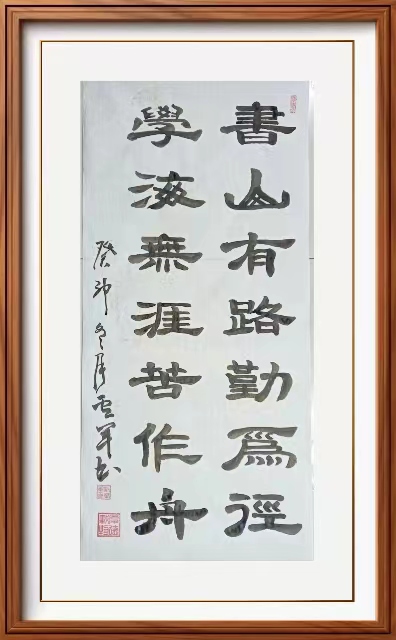 書山有路勤為徑
學海無涯苦作舟
癸卯冬月雲軍書